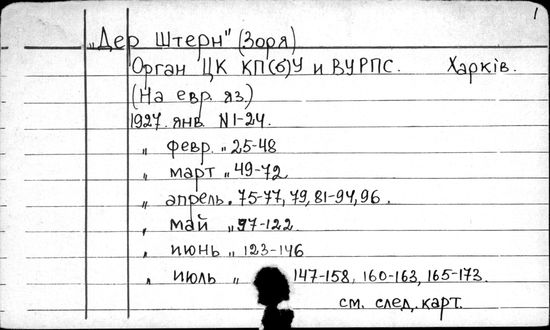 1
„Дер Штерн" (Зоря)
Орган ЦК КП(б)У и ВУРПС. Харкiв.
(На евр. яз.)
1927. янв. N 1-24.
„ февр. „ 25-48
„ март „ 49-72
„ апрель „ 75-77, 79, 81-94, 96.
„ май „ 97-122
„ июнь „ 123-146
„ июль „ 147-158, 160-163, 165-173.
см. след. карт.